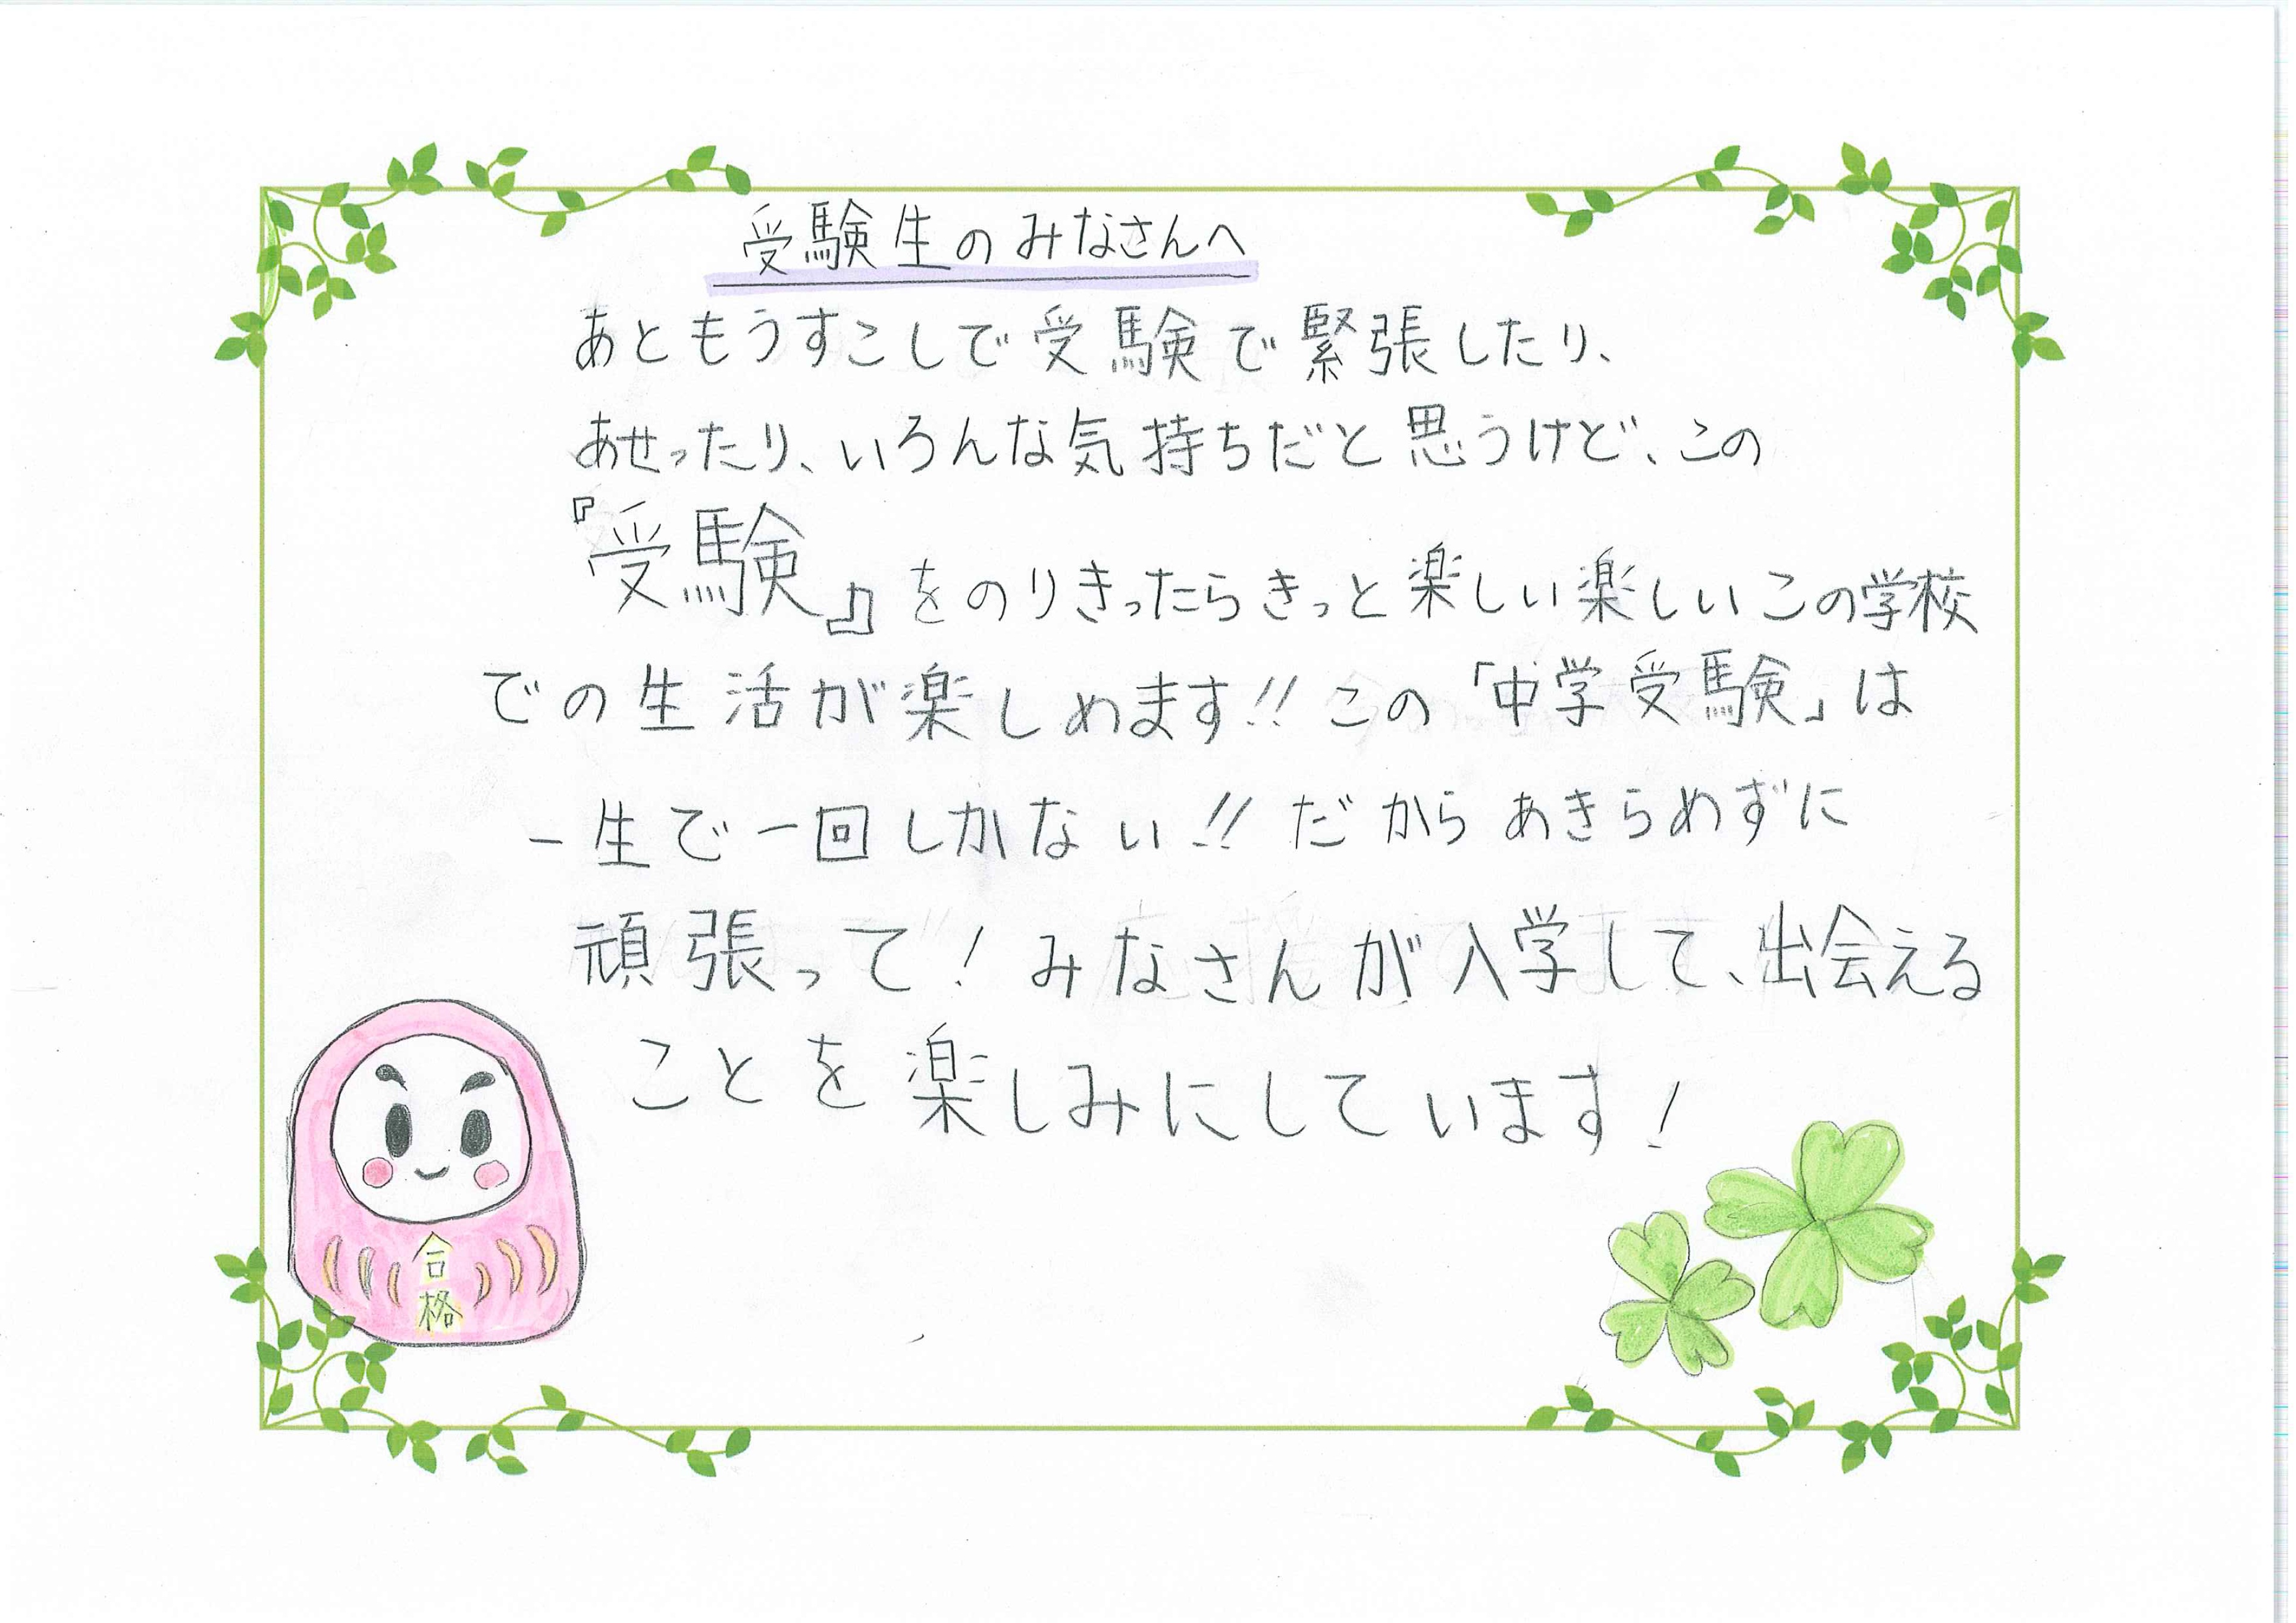 受験生のみなさんへ
あともうすこしで受験で緊張したり、
あせったり、いろんな気持ちだと思うけど、この
『受験』をのりきったらきっと楽しい楽しいこの学校
での生活が楽しめます!!この「中学受験」は
一生で一回しかない!!だからあきらめずに
頑張って!みなさんが入学して、出会える
ことを楽しみにしています!
合格